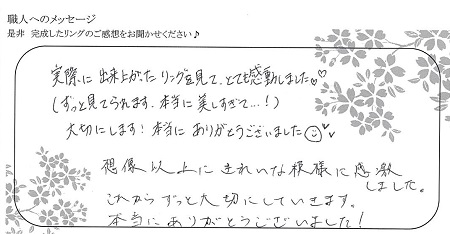 職人へのメッセージ
是非 完成したリングのご感想をお聞かせください♪
実際に出来上がったリングを見て、とても感動しました♡♡
(ずっと見てられます、本当に美しすぎて…!)
大切にします!本当にありがとうございました☺♡
想像以上にきれいな模様に感激
しました。
これからずっと大切にしていきます。
本当にありがとうございました!